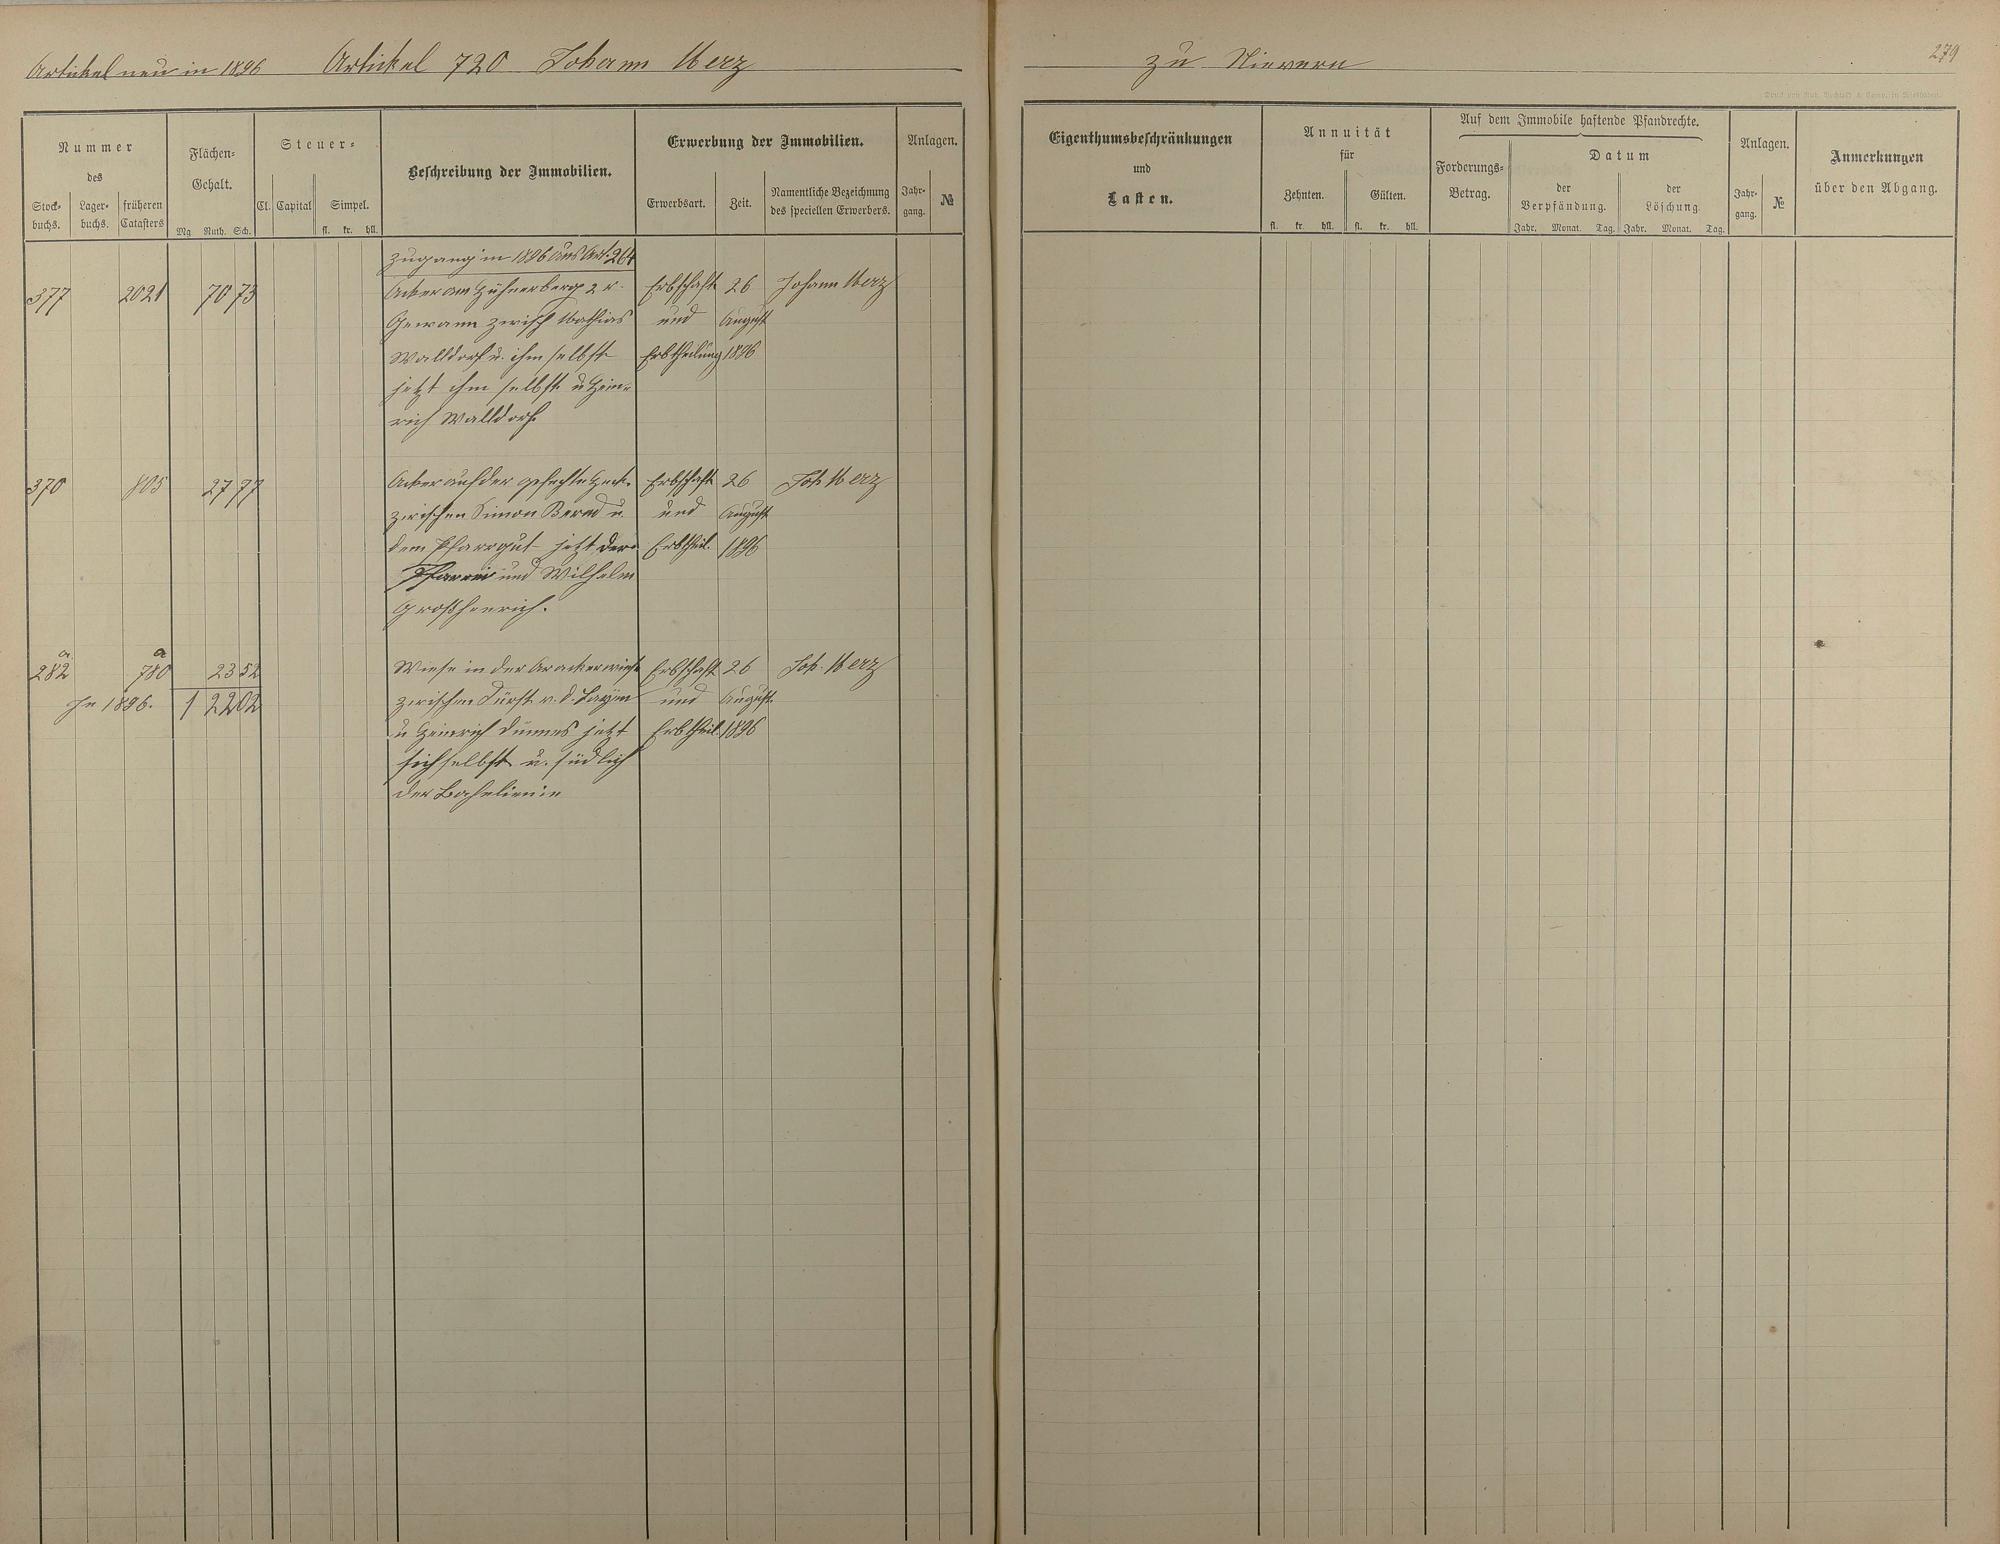 Artikel neu in 1896 Artikel 720 Johann Merz zu Nievern
279
Nummer
des
Stock-
buchs.
Lager-
buchs.
früheren
Catasters
Flächen-
Gehalt.
Mg Ruth. Sch.
Steuer-
Cl. Capital Simpel.
fl. kr. hll.
Beschreibung der Immobilien.
Erwerbung der Immobilien.
Erwerbsart. Zeit.
Namentliche Bezeichnung
des speciellen Erwerbers.
Anlagen.
Jahr-
gang.
№
Eigenthumsbeschränkungen
und
Lasten.
Annuität
für
Zehnten. Gülten.
fl. kr. hll. fl. kr. hll.
Auf dem Immobile haftende Pfandrechte.
Forderungs-
Betrag.
Datum
der
Verpfändung.
der
Löschung.
Jahr. Monat. Tag. Jahr. Monat. Tag.
Anlagen.
Jahr-
gang.
№
Anmerkungen
über den Abgang.
Zugang in 1896 aus Art. 264
377 2021 70 73 Acker am Hühnerberg 2r Erbschaft 26 Johann Merz
Gewann zwisch Mathias und August
Walldorf u. ihm selbst Erbtheilung 1896
jetzt ihm selbst u Hein-
rich Walldorf
370 805 27 77 Acker auf der Heck Erbschaft 26 Joh Merz
zwischen Simon Bernd u. und August
dem Pfarrgut jetzt der Erbtheil. 1896
Pfarrei und Wilhelm
Großhenrich.
a a
282 780 23 52 Wiese in der Erbschaft 26 Joh. Merz
In 1896. 1 22 02 zwischen Fürst v. d. Layen und August
u Heinrich jetzt Erbtheil. 1896
sich selbst u. südlich
der